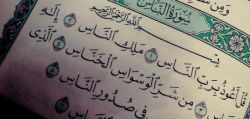 وَمِن
سُورَةُ النَّاسِ
بِسْمِ اللَّهِ الرَّحْمَٰنِ الرَّحِيمِ
أَعُوذُ بِرَبِّ النَّاسِ ١ مَلِكِ النَّاسِ ٢ إِلَٰهِ
مِن شَرِّ الْوَسْوَاسِ الْخَنَّاسِ ٤ الَّذِي
فِي صُدُورِ النَّاسِ ٥